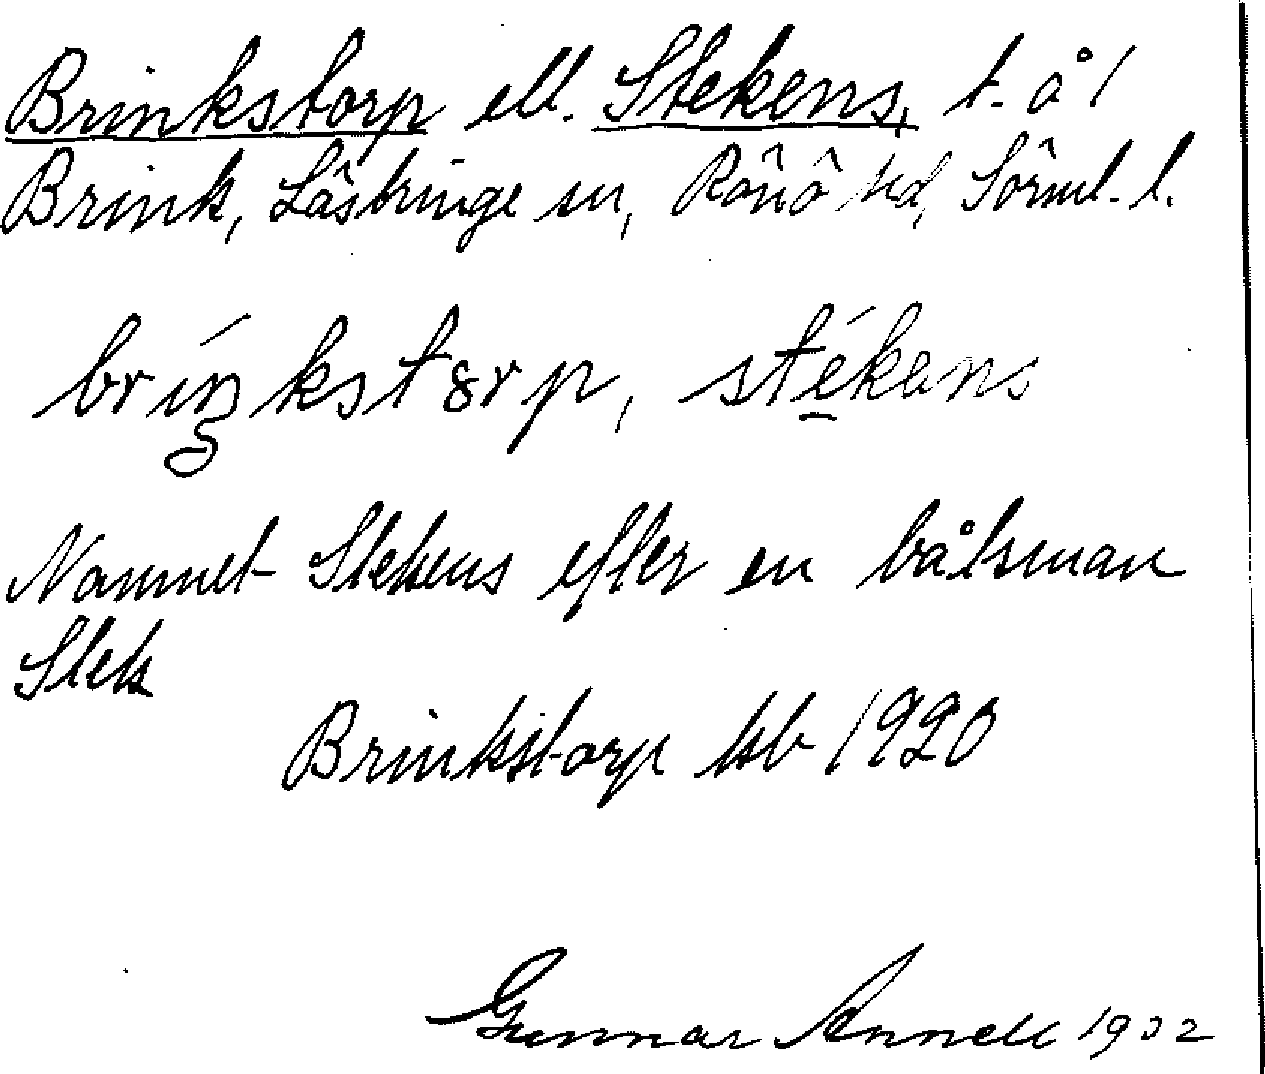 Brinkstorp ell. Stekens, t. å 1
Brink, Lästringe sn, Rönö hd, Sörml. l.
briŋkstorp, stékens
Namnet Stekens efter en båtsman
Stek
Brinkstorp kb 1920
Gunnar Annell 1932